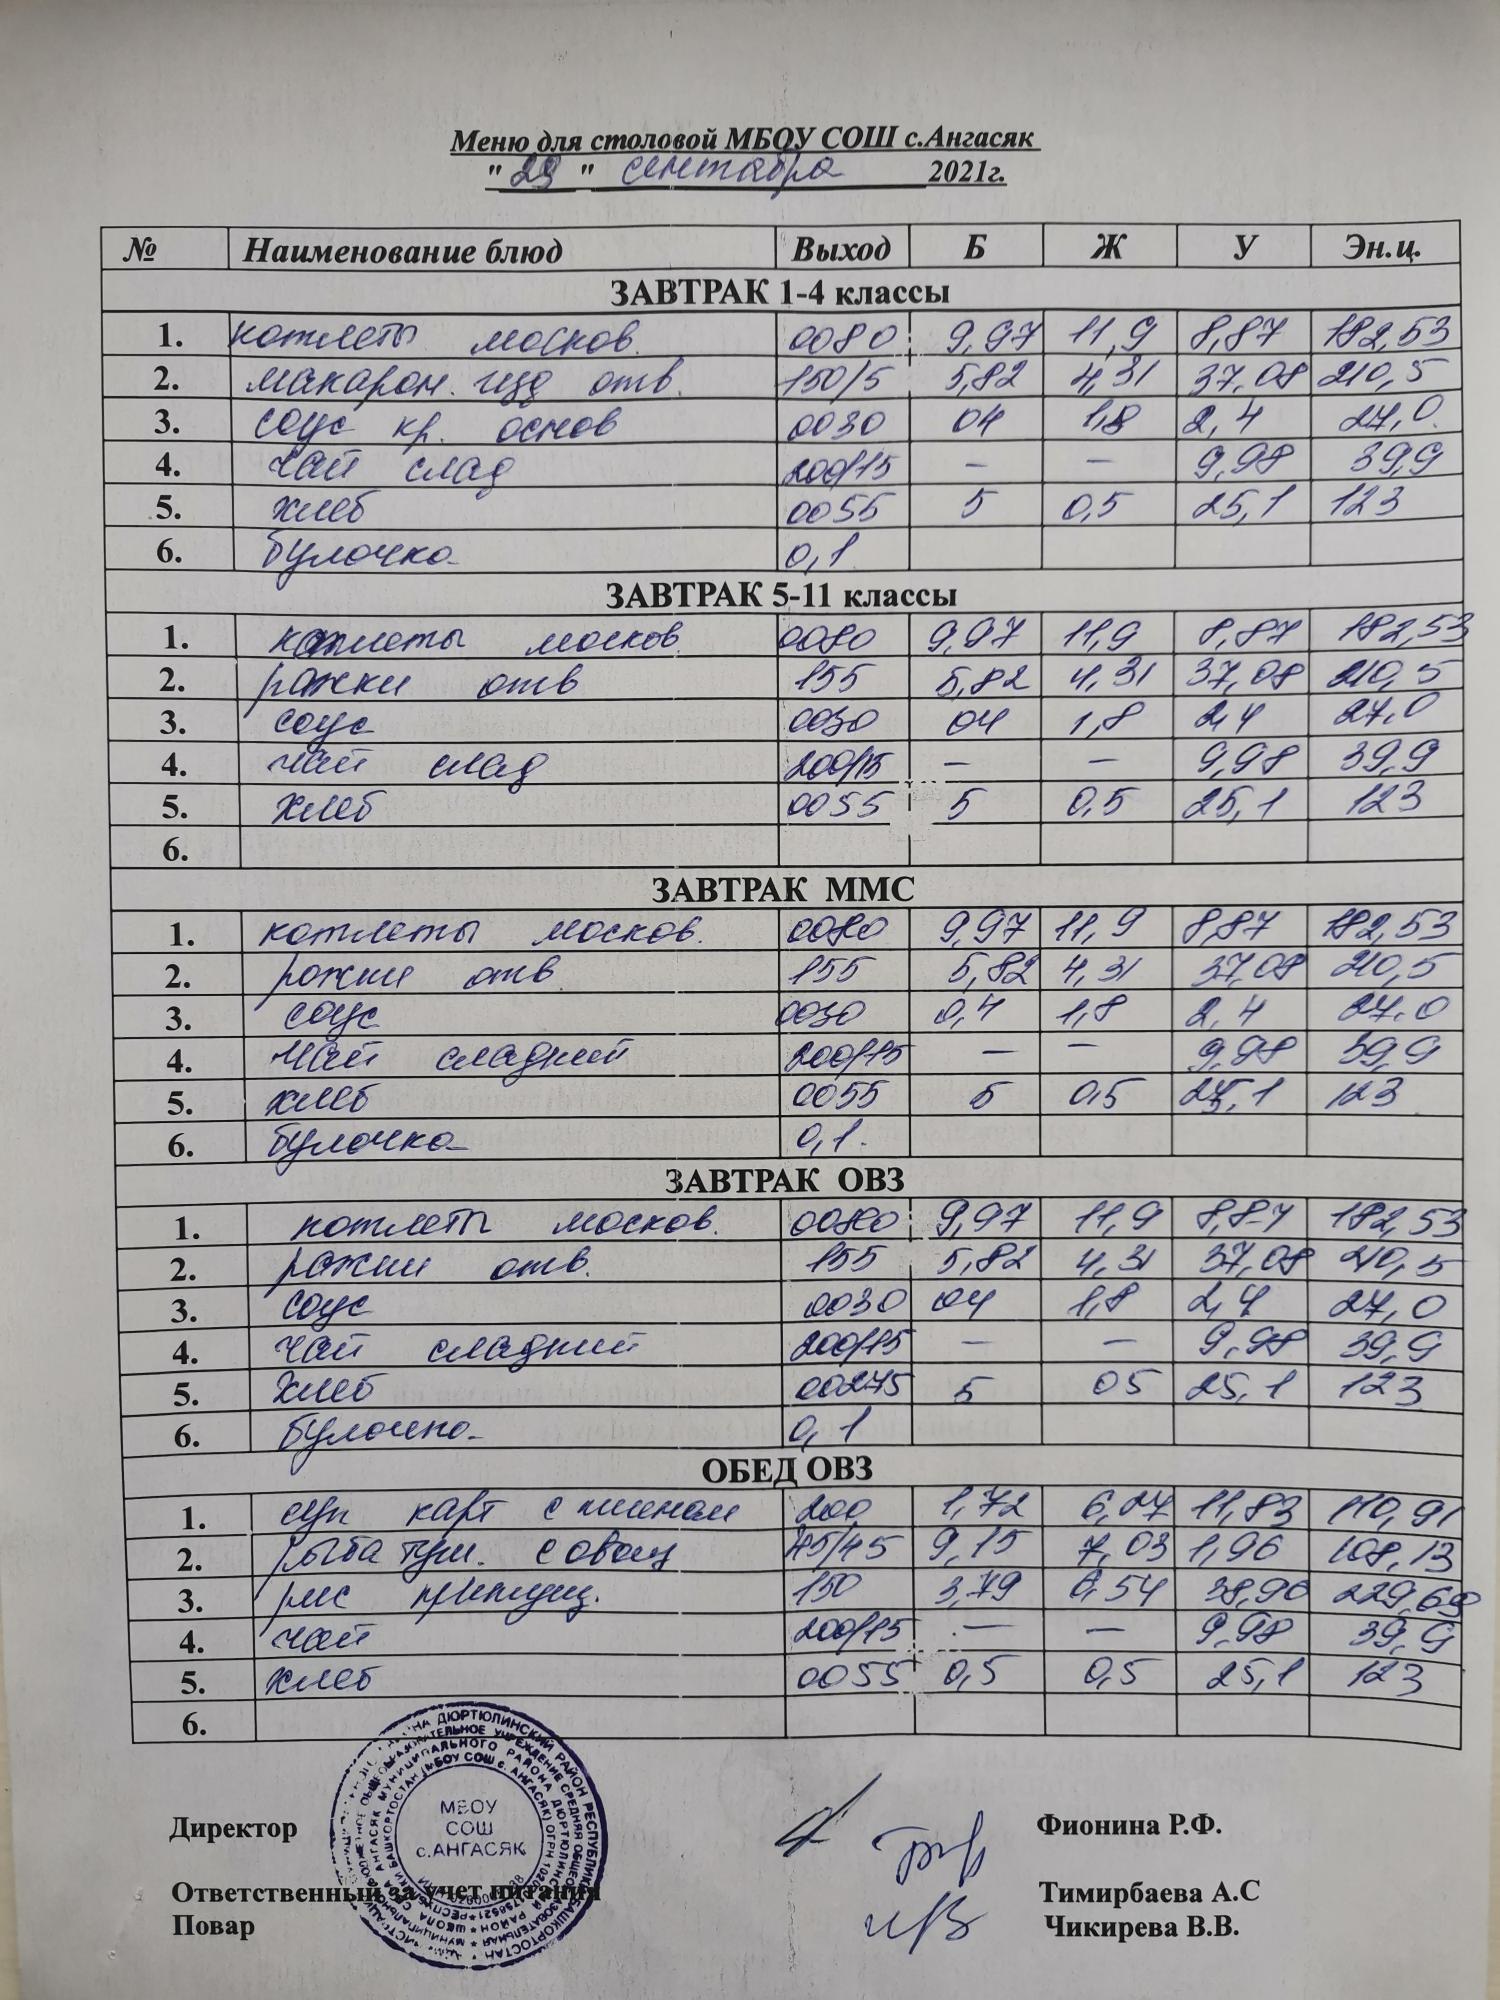 Меню для столовой МБОУ СОШ с.Ангасяк
"29" сентабра 2021г.
№ Наименование блюд Выход Б Ж У Эн.ц.
ЗАВТРАК 1-4 классы
1. котлеты москов. 0080 9,97 11,9 8,87 182,53
2. макарон. изд отв. 150/5 5,82 4,31 37,08 210,5
3. соус кр. основ 0030 04 1,8 2,4 27,0
4. чай слад 200/15 — — 9,98 39,9
5. хлеб 0055 5 0,5 25,1 123
6. булочка 0,1
ЗАВТРАК 5-11 классы
1. котлеты москов. 0080 9,97 11,9 8,87 182,53
2. рожки отв 155 5,82 4,31 37,08 210,5
3. соус 0030 04 1,8 2,4 27,0
4. чай слад 200/15 — — 9,98 39,9
5. хлеб 0055 5 0,5 25,1 123
6.
ЗАВТРАК ММС
1. котлеты москов. 0080 9,97 11,9 8,87 182,53
2. рожки отв 155 5,82 4,31 37,08 210,5
3. соус 0030 0,4 1,8 2,4 27,0
4. чай сладкий 200/15 — — 9,98 39,9
5. хлеб 0055 5 0,5 25,1 123
6. булочка 0,1.
ЗАВТРАК ОВЗ
1. котлеты москов. 0080 9,97 11,9 8,87 182,53
2. рожки отв. 155 5,82 4,31 37,08 210,5
3. соус 0030 04 1,8 2,4 27,0
4. чай сладкий 200/15 — — 9,98 39,9
5. хлеб 00275 5 05 25,1 123
6. булочка 0,1
ОБЕД ОВЗ
1. суп карт с пшеном 200 1,72 6,27 11,83 110,91
2. рыба туш. с овощ 45/45 9,15 7,03 1,96 108,13
3. рис припущ. 150 3,79 6,54 38,96 229,69
4. чай 200/15 — — 9,98 39,9
5. хлеб 0055 0,5 0,5 25,1 123
6.
МБОУ
СОШ
с.АНГАСЯК
Директор Фионина Р.Ф.
Ответственный за учет питания Тимирбаева А.С
Повар Чикирева В.В.